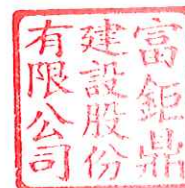 富鉅鼎
建設股份
有限公司